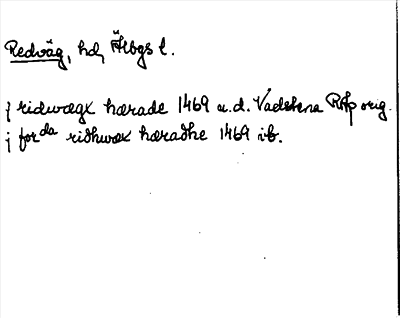 Redväg, hd, Älvbgs l.
j ridwægx hærade 1469 u.d. Vadstena RAp orig.
j forda ridhwæx hæradhe 1469 ib.